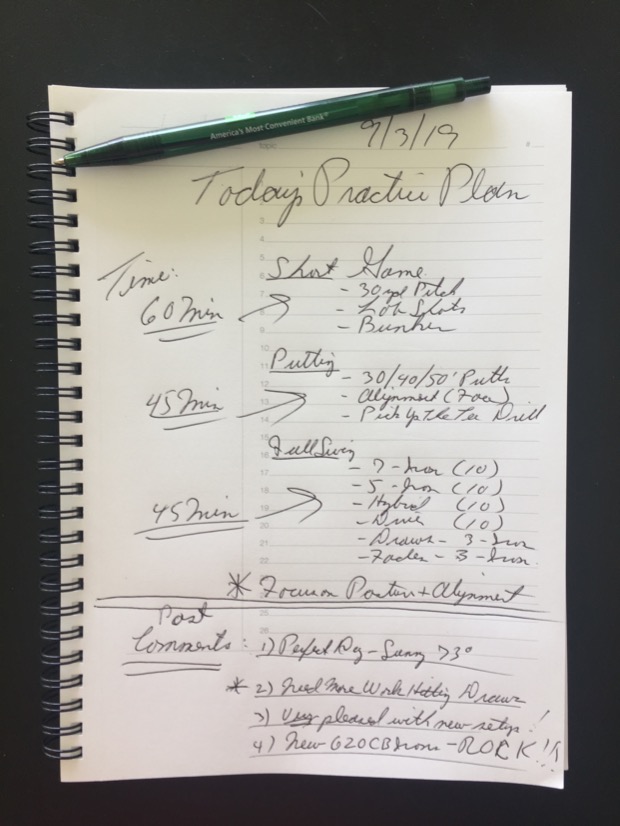 America's Most Convenient Bank®
9/3/19
Today's Practice Plan
Time:
60 Min
Short Game
- 30 yd Pitch
- Lob Shots
- Bunker
45 Min
Putting
- 30/40/50' Putts
- Alignment (Face)
- Pick Up the Tee Drill
45 Min
Full Swing
- 7-Iron (10)
- 5-Iron (10)
- Hybrid (10)
- Driver (10)
- Draws - 3-Iron
- Fades - 3-Iron
* Focus on Posture + Alignment
Post
Comments:
1) Perfect Day - Sunny 73°
* 2) Need More Work Hitting Draws
3) Very pleased with new setup!
4) New G20CB Irons - ROCK!!!